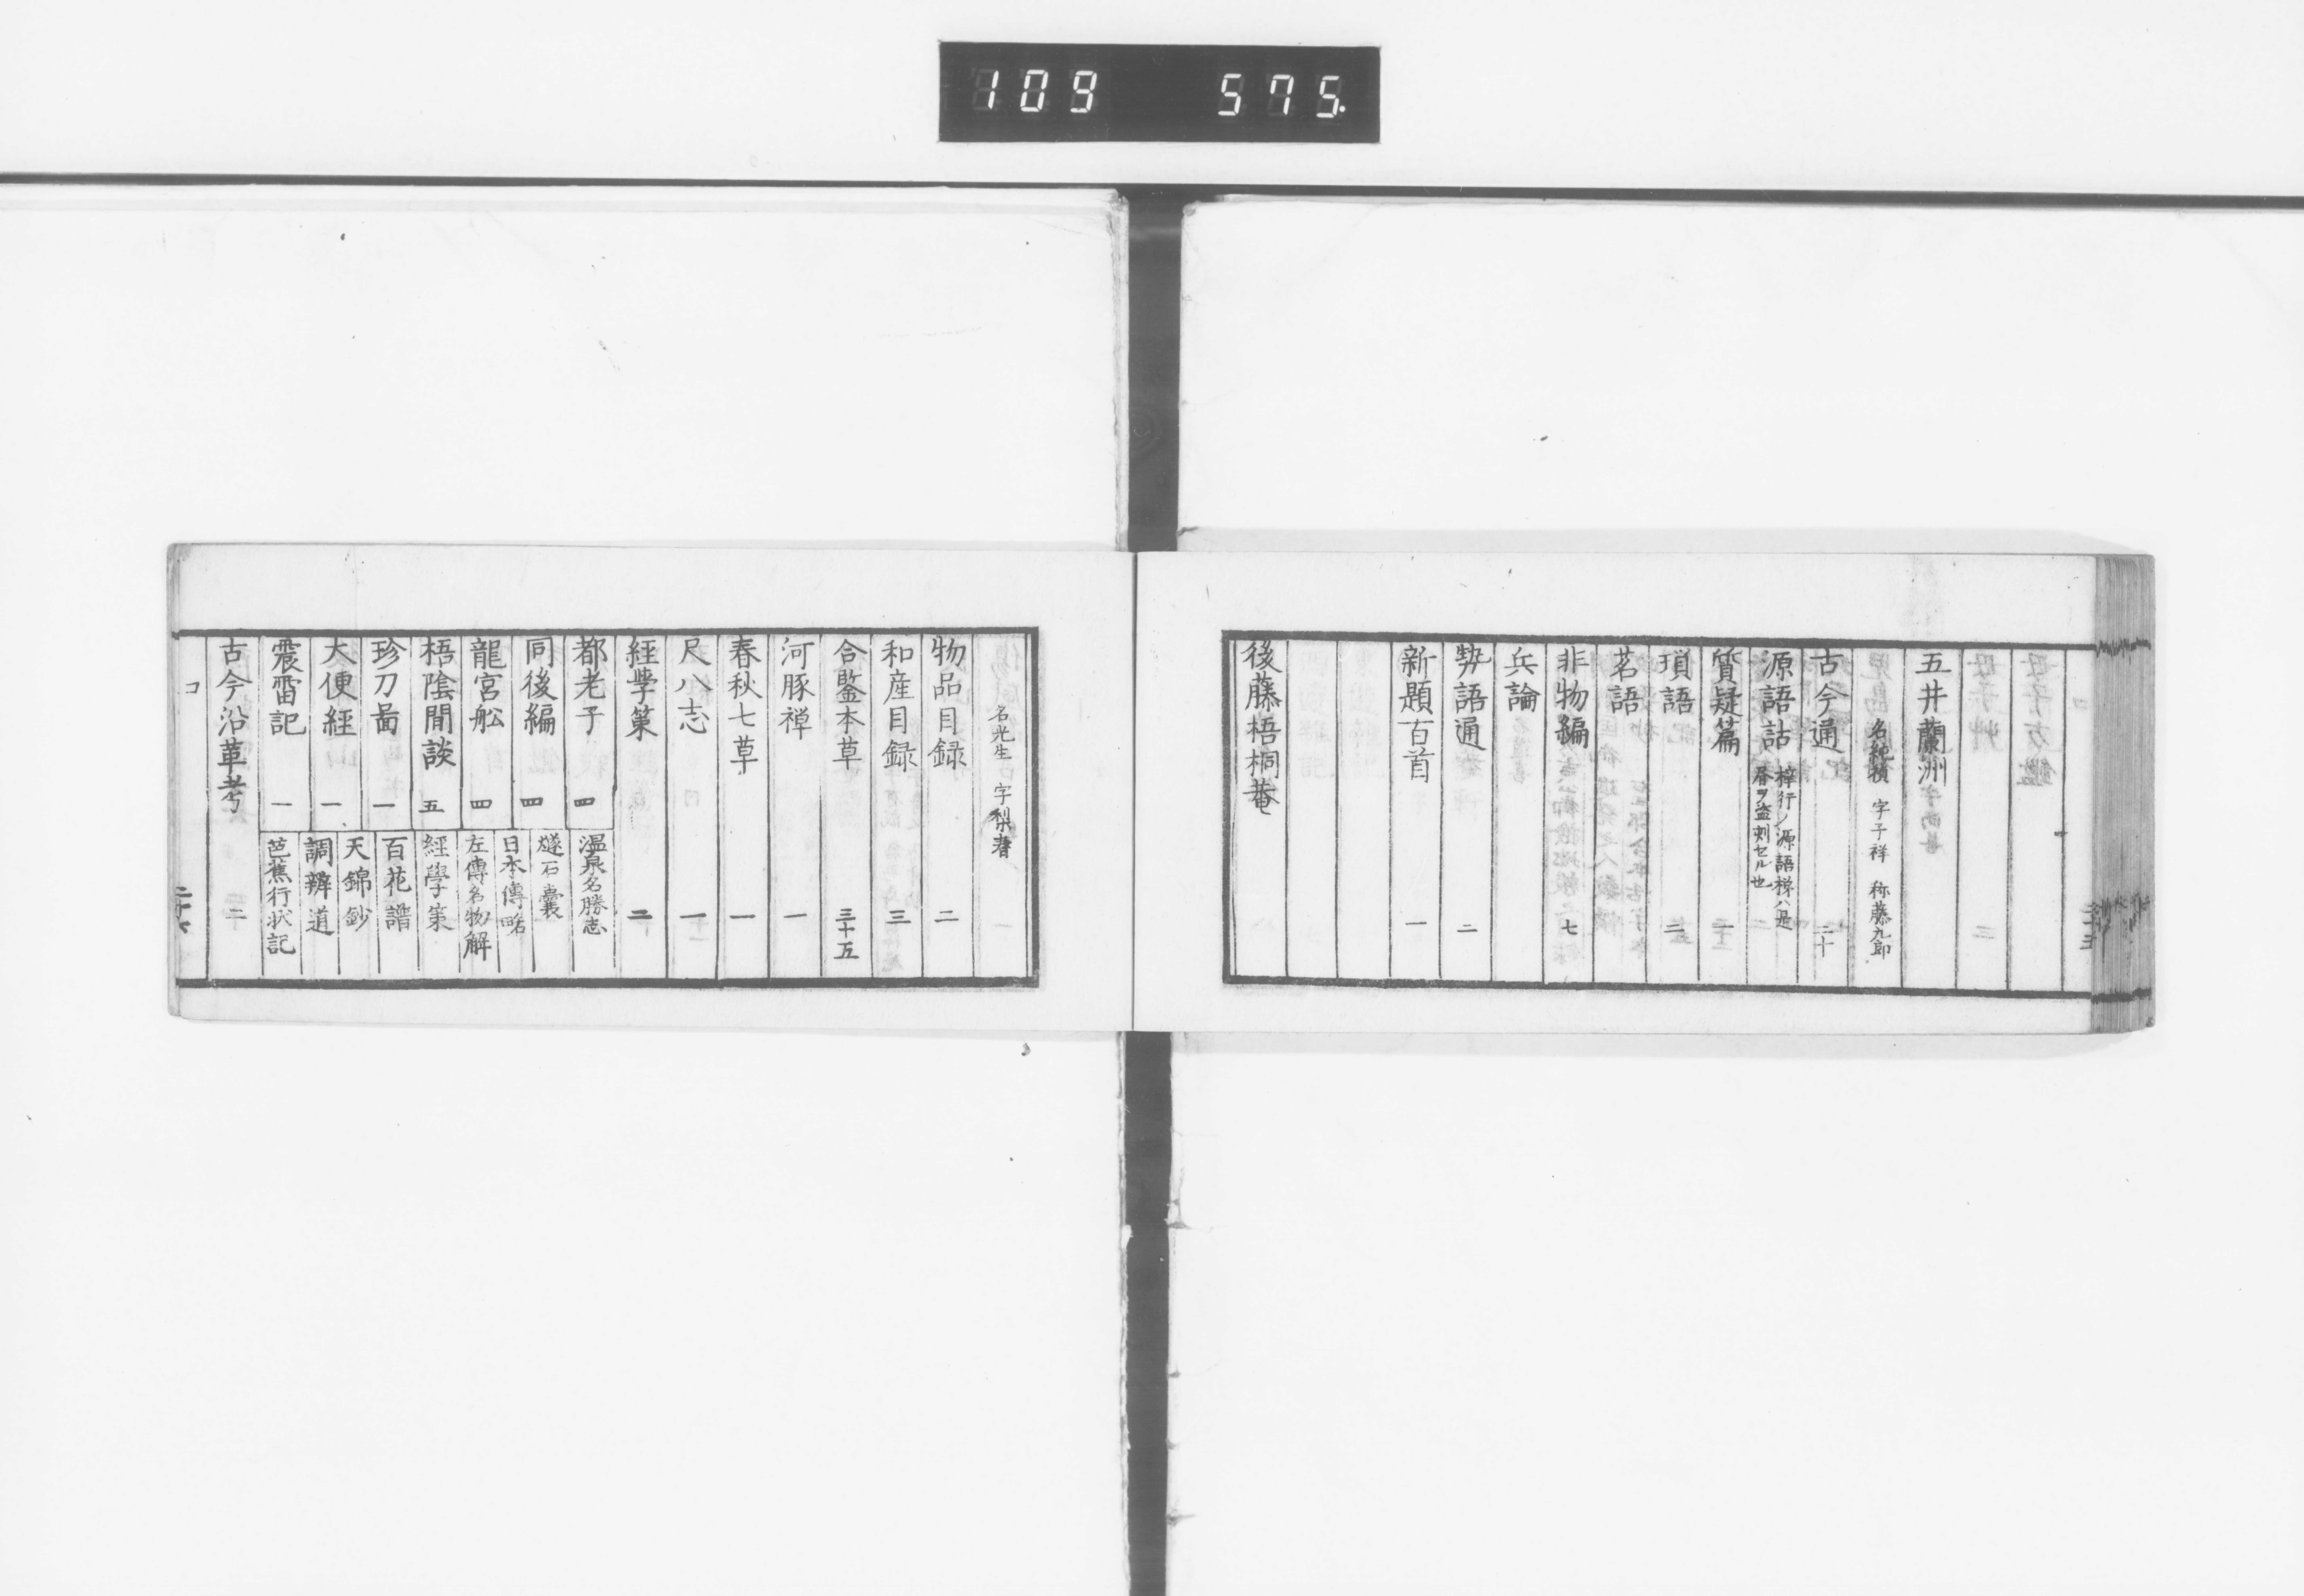 109 575.
コ
五井蘭洲
名純禎 字子祥 称藤九郎
古今通 二十
源語詁 梓行ノ源語梯ハ是
書ヲ盗刻セル也 二
質疑篇 一
瑣語 二
茗語
非物編 七
兵論
勢語通 二
新題百首 一
後藤梧桐菴
名光生 字梨春
物品目録 二
和産目録 三
合鑒本草 三十五
河豚禅 一
春秋七草 一
尺八志 一
經學策 二
都老子 四
同後編 四
龍宮舩 四
梧陰間談 五
珍刀啚 一
大便經 一
震雷記 一
温泉名勝志
燧石囊
日本傳略
左傳名物解
經學策
百花譜
天錦鈔
調辨道
芭蕉行状記
古今沿革考 二
コ